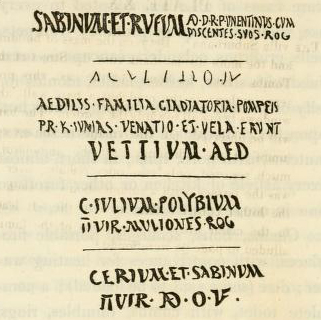 SABINUM·ET·RUFUM Æ·D·R·P·VALENTINUS·CUM
DISCENTES·SUOS·ROG
AEDILIS·FAMILIA GLADIATORIA·POMPEIS
PR·K·IUNIAS·VENATIO·ET·VELA·ERUNT
VETTIUM·AED
C·IULIUM·POLYBIUM
IIVIR·MULIONES·ROG
CERIUM·ET·SABINUM
IIVIR·D·O·V·F·